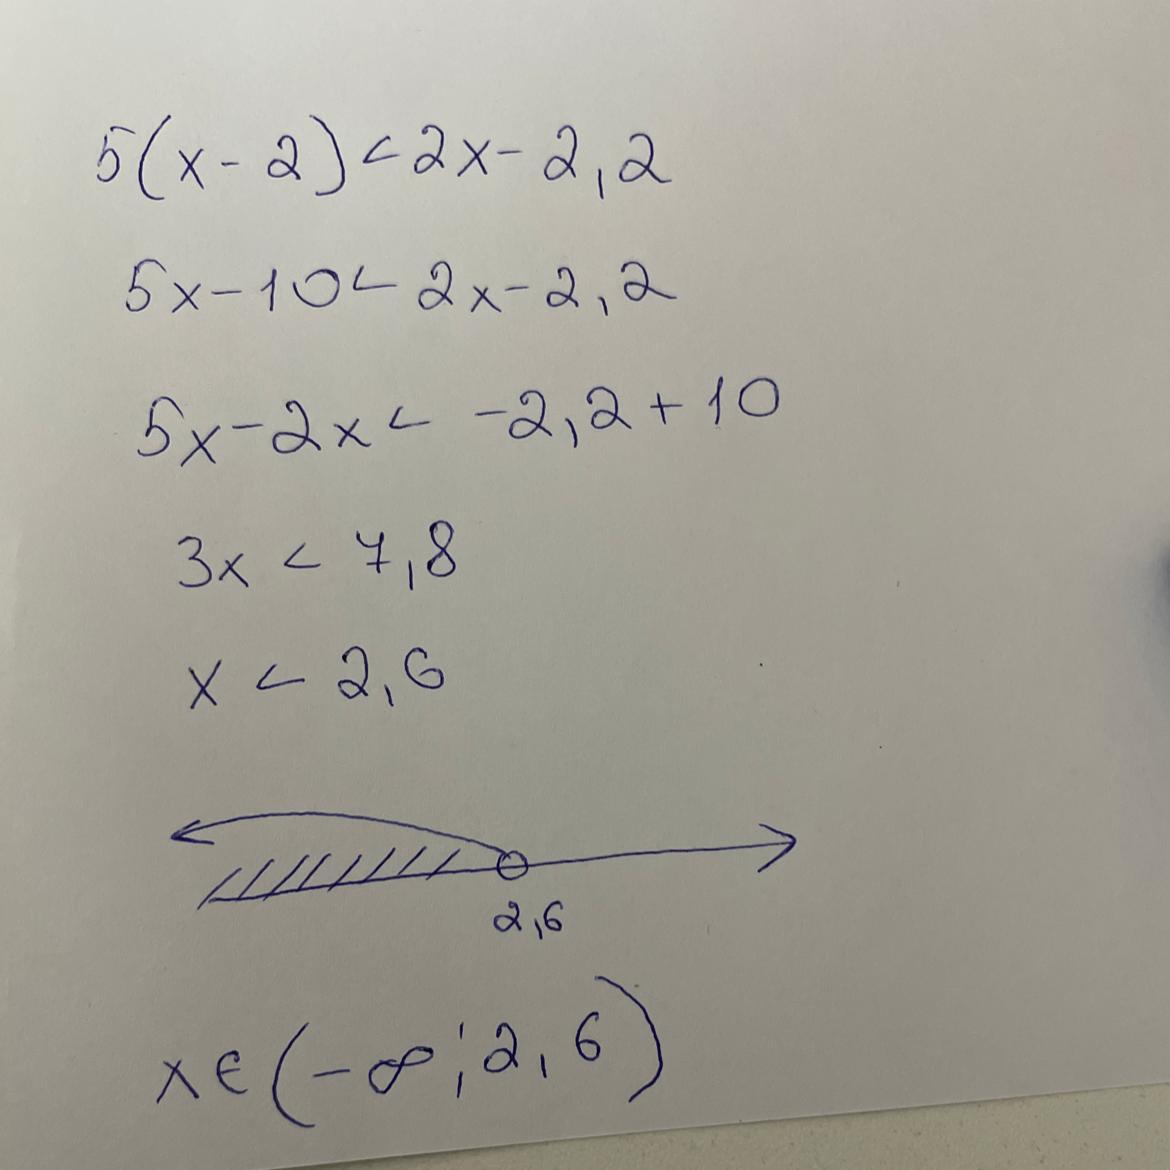 5(x-2)<2x-2,2
5x-10<2x-2,2
5x-2x< -2,2+10
3x < 7,8
x < 2,6
2,6
x∈(-∞;2,6)